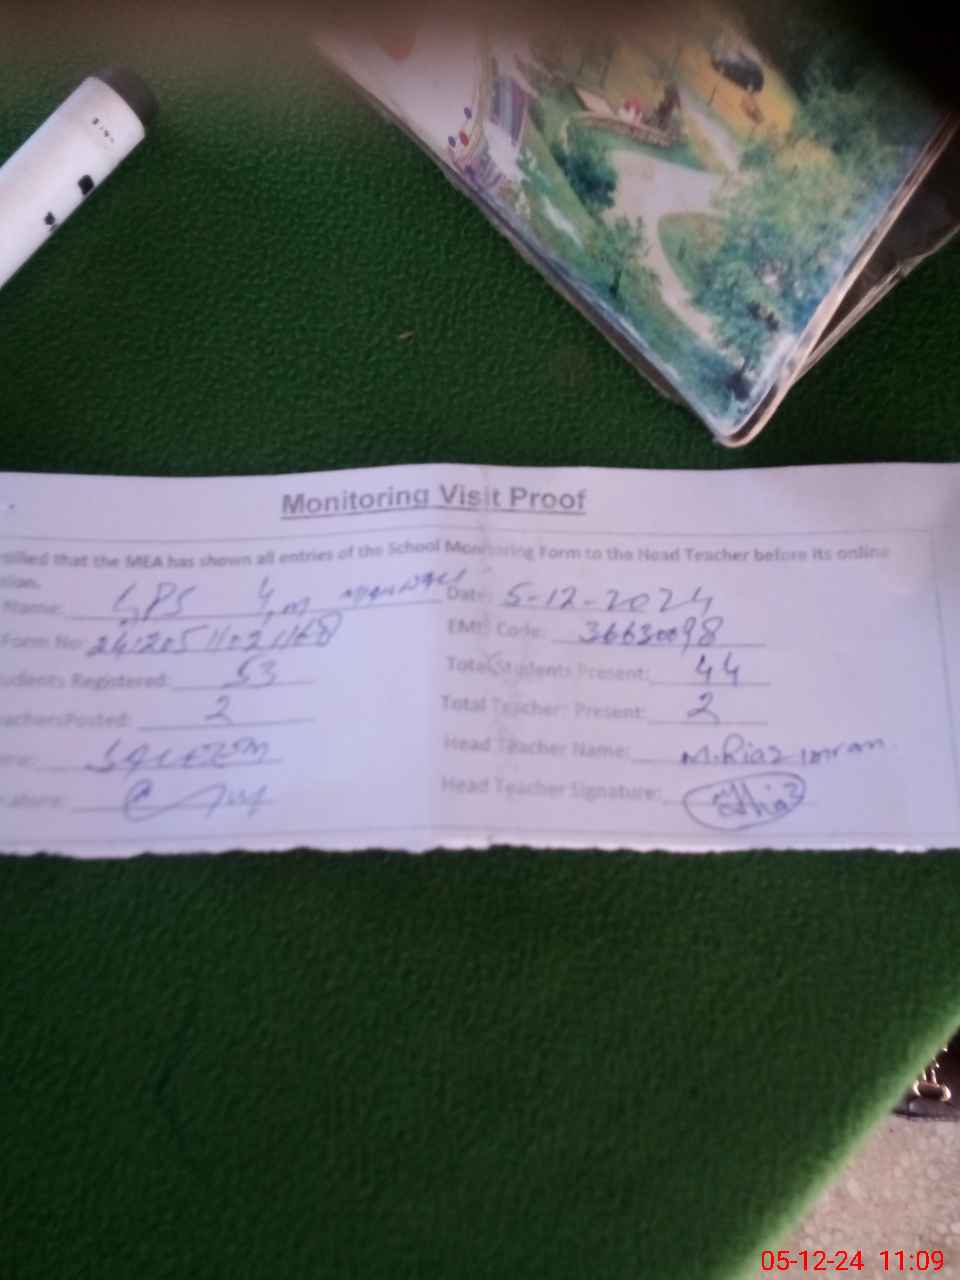 Monitoring Visit Proof
that the MEA has shown all entries of the School Monitoring Form to the Head Teacher before its online
Name: GPS Date: 5-12-2024
Form No: EMIS Code: 36630098
Students Registered: 53 Total Students Present: 44
Teachers Posted: 2 Total Teacher: Present: 2
Head Teacher Name: M.Riaz imran
Head Teacher Signature:
05-12-24 11:09